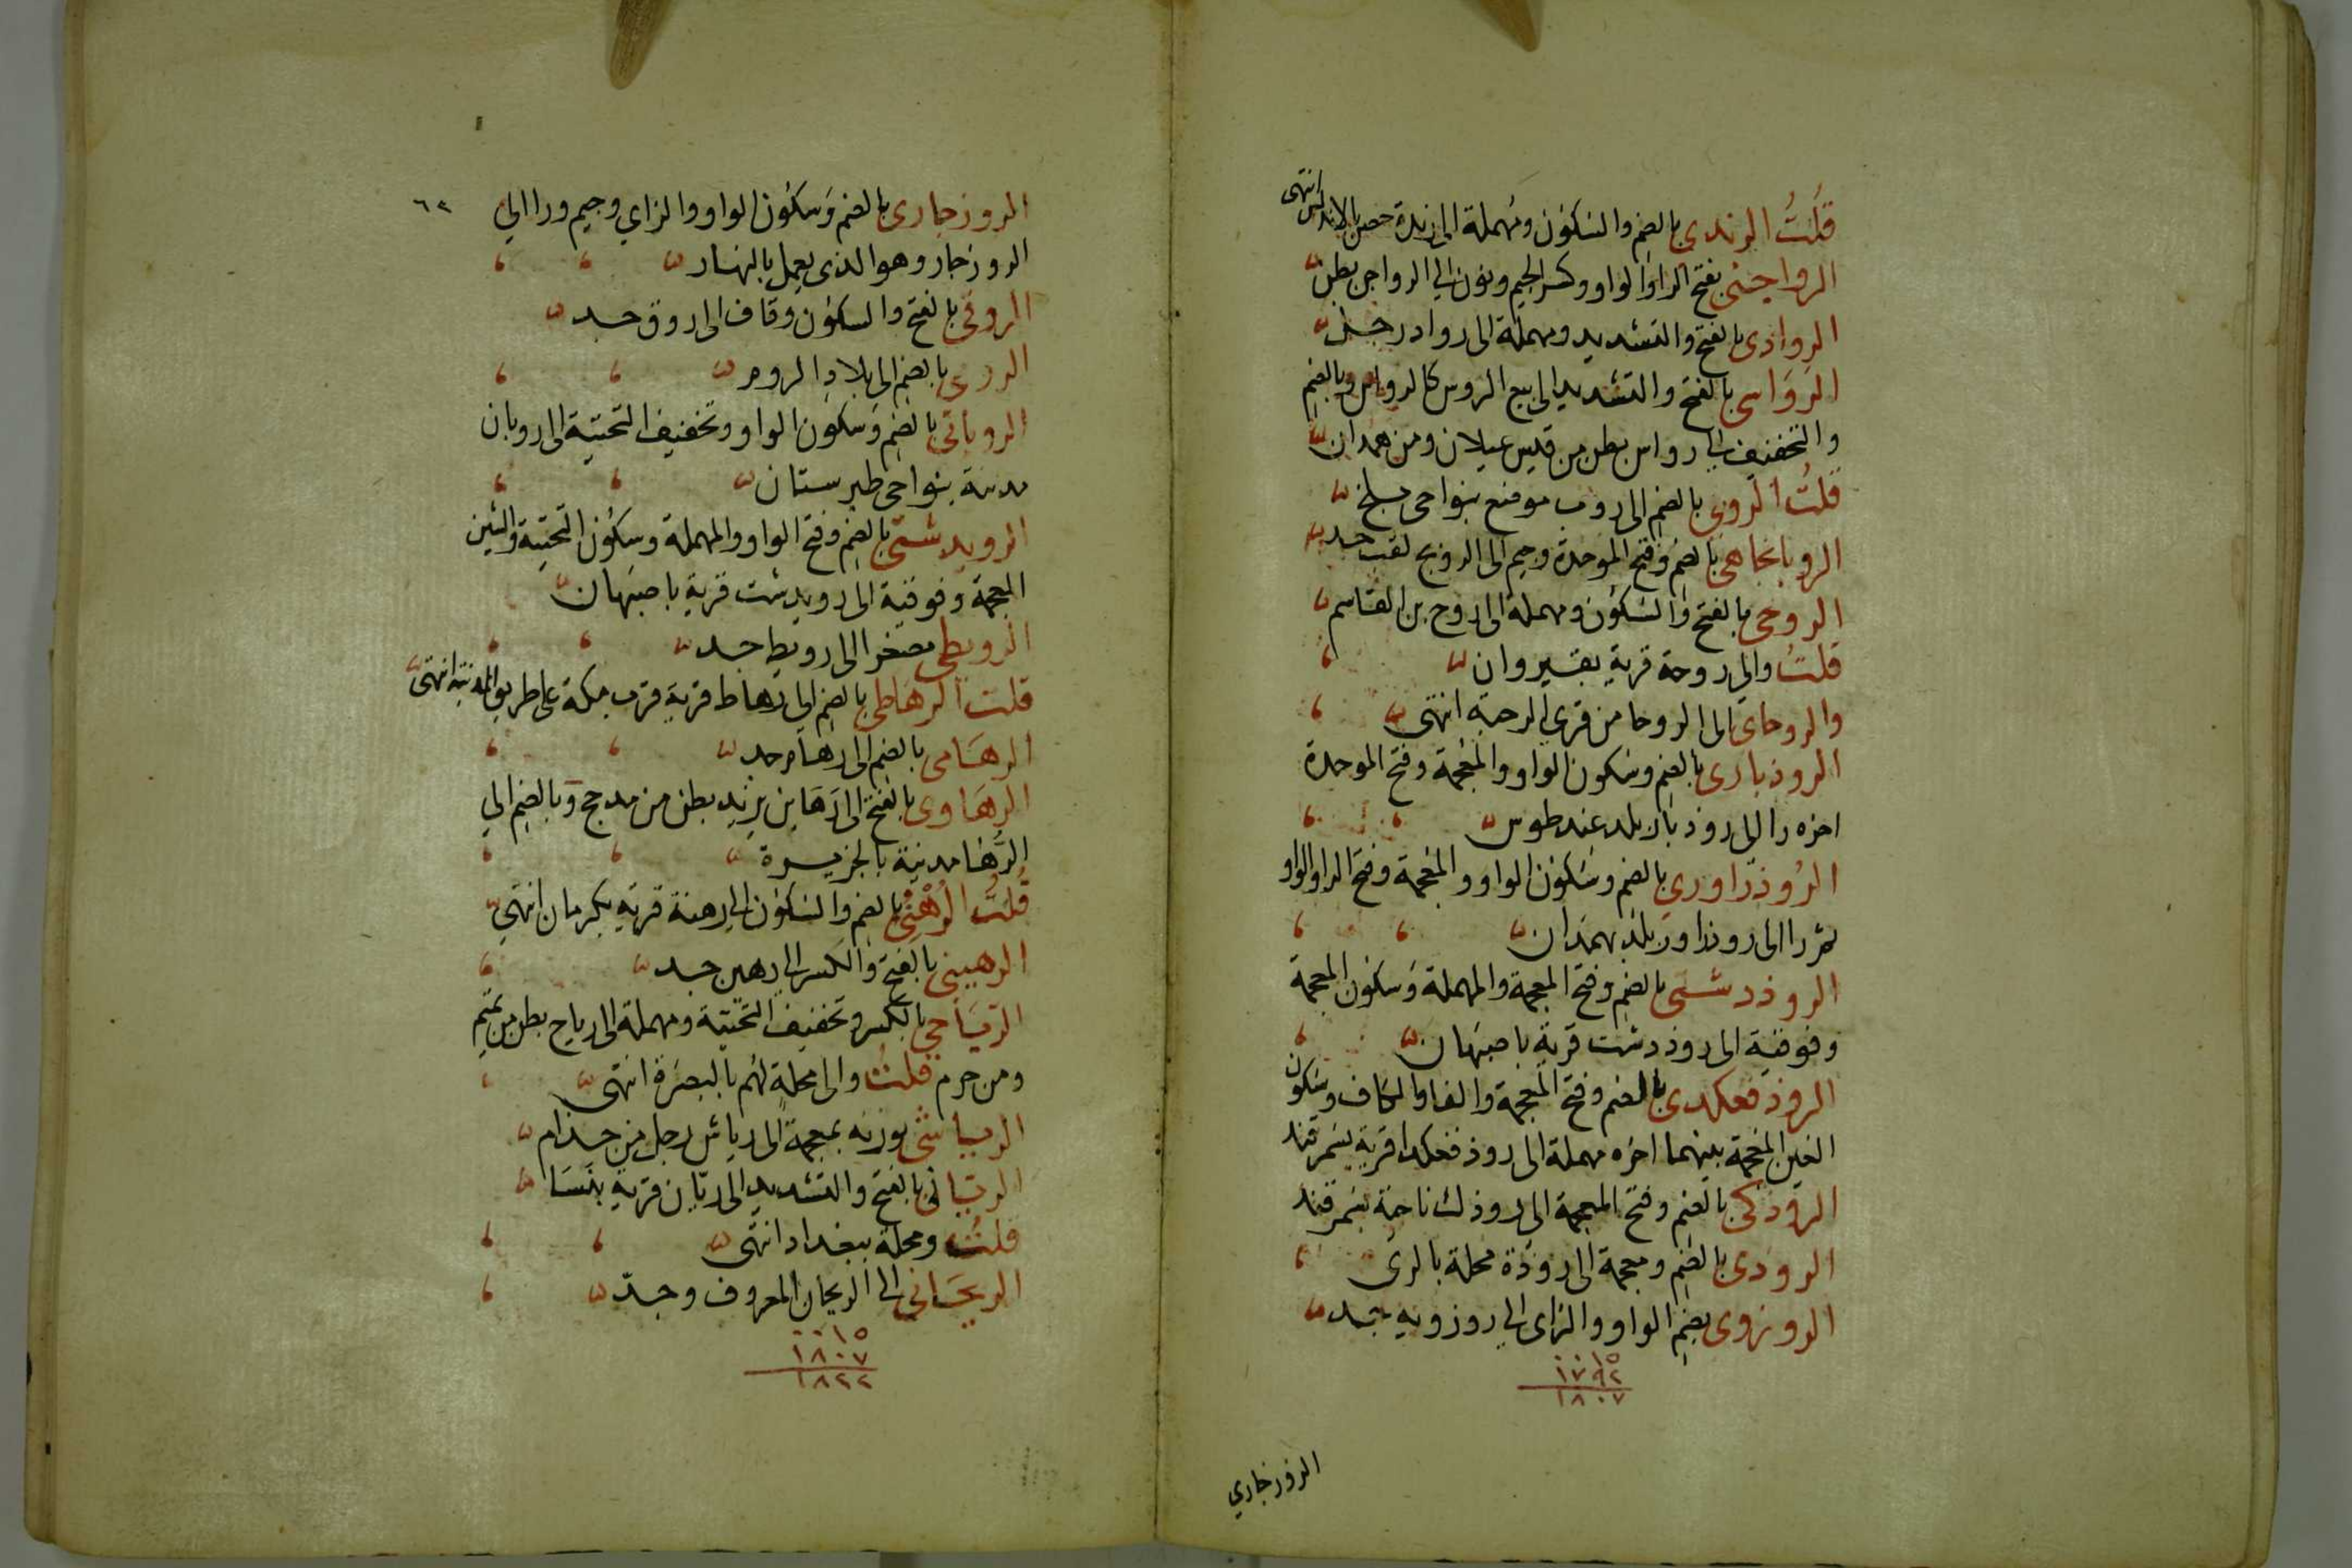 قلت الرندي بالضم والسكون ومهملة الى رندة حصن بالاندلس انتهى
الرواجنى بفتح الرا والواو وكسر الجيم ونون الى الرواجن بطن
الروادى بالفتح والتشديد ومهملة الى رواد رجل
الرواسى بالفتح والتشديد الى بيع الروس كالرواس وبالضم
والتخفيف الى رواس بطن من قيس عيلان ومن همدان
قلت الروبى بالضم الى روب موضع بنواحى بلخ
الروبانجاهى بالضم وفتح الموحدة وجيم الى الروبج لقب جد
الروحى بالفتح والسكون ومهملة الى روح بن القاسم
قلت والى روحة قرية بقيروان
والروحاى الى الروحا من قرى الرحبة انتهى
الروذبارى بالضم وسكون الواو والمعجمة وفتح الموحدة
اخره را الى روذبار بلد عند طوس
الروذراورى بالضم وسكون الواو والمعجمة وفتح الرا والواو
ثم را الى روذراور بلد بهمذان
الروذدشتى بالضم وفتح المعجمة والمهملة وسكون المعجمة
وفوقية الى روذدشت قرية باصبهان
الروذفغكدى بالضم وفتح المعجمة والفا والكاف وسكون
الغين المعجمة بينهما اخره مهملة الى روذفغكد قرية بسمرقند
الروذكى بالضم وفتح المعجمة الى روذك ناحية بسمرقند
الروذى بالضم ومعجمة الى روذة محلة بالرى
الروزوى بضم الواو والزاى الى روزويه جد
١٥
١٧٩٢
١٨٠٧
الروزجاري
٦٢
الروزجارى بالضم وسكون الواو والزاي وجيم ورا الى
الروزجار وهو الذى يعمل بالنهار
الروقى بالفتح والسكون وقاف الى روق جد
الرومى بالضم الى بلاد الروم
الرويانى بالضم وسكون الواو وتخفيف التحتية الى رويان
مدينة بنواحى طبرستان
الرويدشتى بالضم وفتح الواو والمهملة وسكون التحتية والشين
المعجمة وفوقية الى رويدشت قرية باصبهان
الرويطى مصغر الى رويط جد
قلت الرهاطى بالضم الى رهاط قرية قرب مكة على طريق المدينة انتهى
الرهامى بالضم الى رهام جد
الرهاوى بالفتح الى رها بن يزيد بطن من مدحج وبالضم الى
الرها مدينة بالجزيرة
قلت الرهنى بالضم والسكون الى رهنة قرية بكرمان انتهى
الرهينى بالفتح والكسر الى رهين جد
الرياحى بالكسر وتخفيف التحتية ومهملة الى رياح بطن من تميم
ومن جرم قلت والى محلة لهم بالبصرة انتهى
الرياشى بوزنه بمعجمة الى رياش رجل من جذام
الريانى بالفتح والتشديد الى ريان قرية بنسا
قلت ومحلة ببغداد انتهى
الريحانى الى الريحان المعروف وجد
١٥
١٨٠٧
١٨٢٢